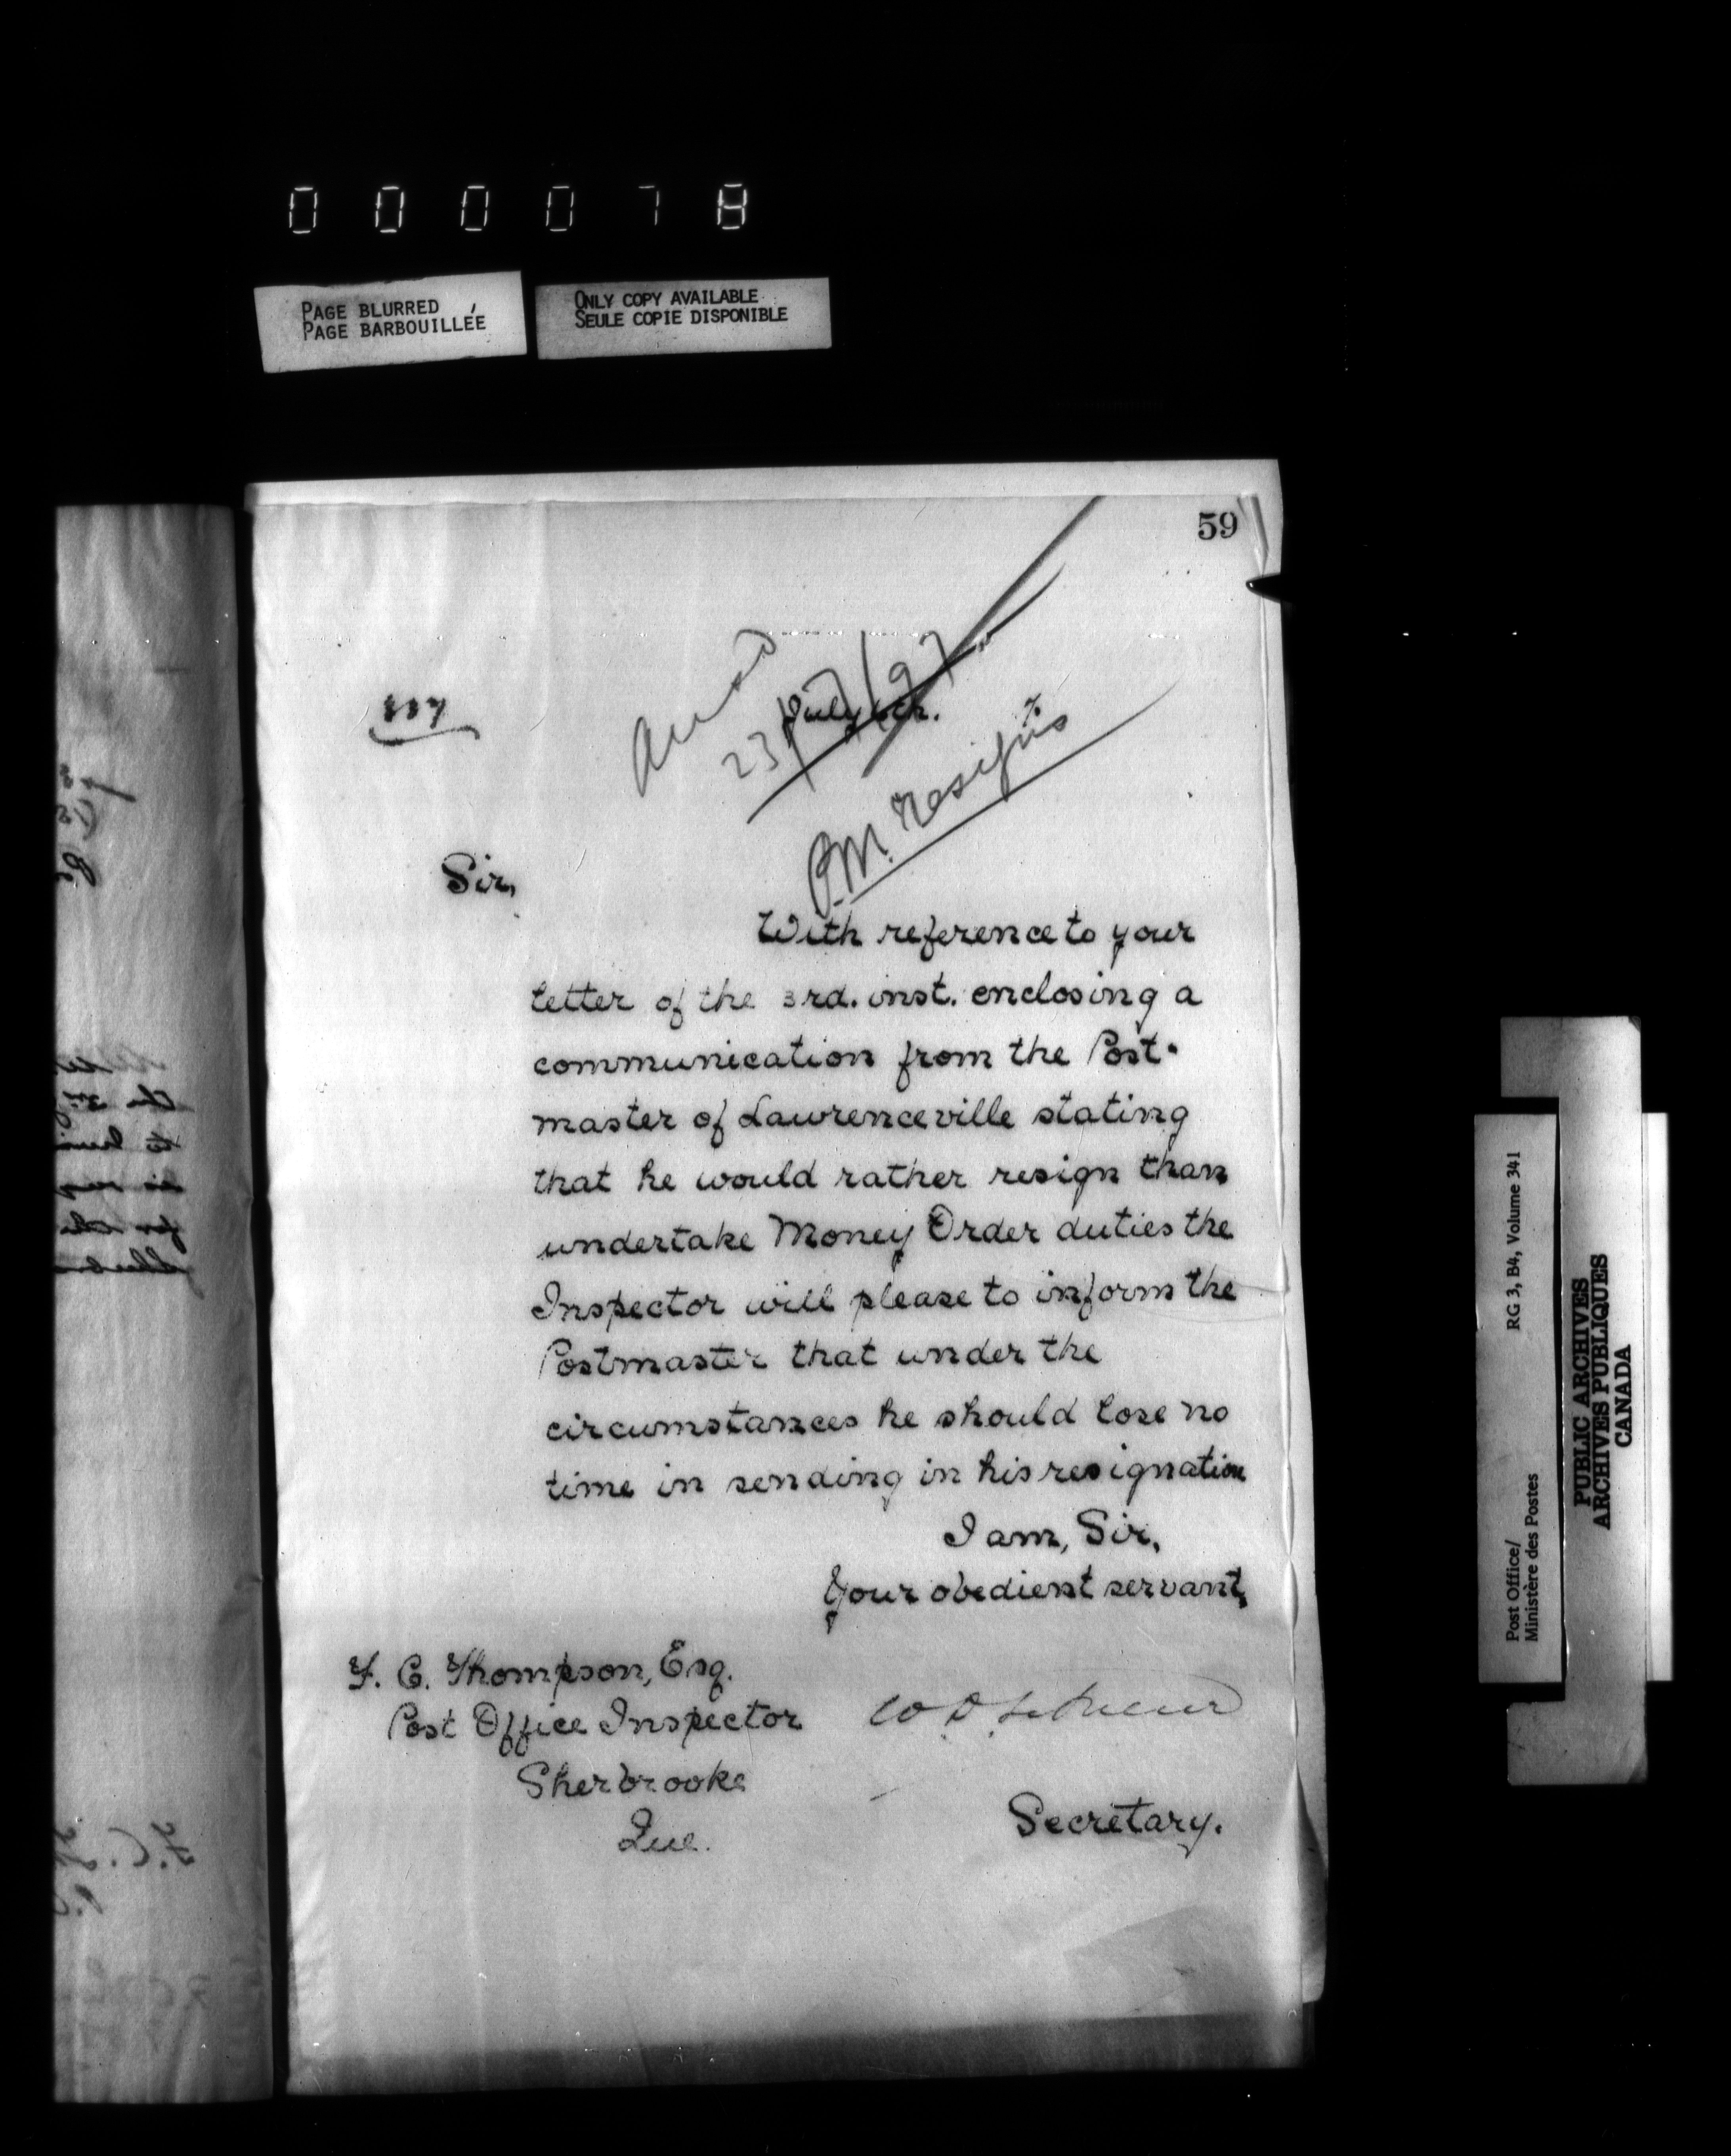 000078
PAGE BLURRED
PAGE BARBOUILLÉE
ONLY COPY AVAILABLE
SEULE COPIE DISPONIBLE
59
337
Answd
23/7/97
July 6th.
P.M. resigns
Sir,
With reference to your
letter of the 3rd. inst. enclosing a
communication from the Post-
master of Lawrenceville stating
that he would rather resign than
undertake Money Order duties the
Inspector will please to inform the
Postmaster that under the
circumstances he should lose no
time in sending in his resignation
I am, Sir,
Your obedient servant,
F. C. Thompson, Esq.
Post Office Inspector
Sherbrooke
Que.
Secretary.
Post Office/
Ministère des Postes
RG 3, B4, Volume 341
PUBLIC ARCHIVES
ARCHIVES PUBLIQUES
CANADA